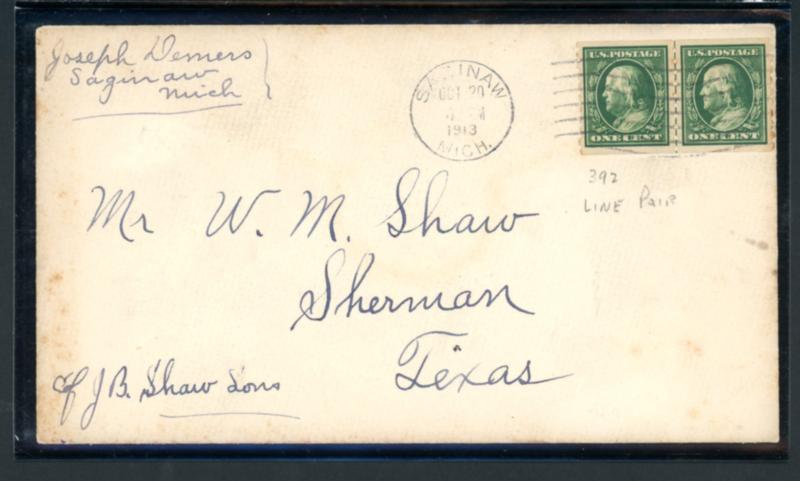 Joseph Demers
Saginaw
Mich
SAGINAW
OCT 20
1913
MICH.
U.S. POSTAGE
ONE CENT
U.S. POSTAGE
ONE CENT
392
LINE PAIR
Mr W. M. Shaw
Sherman
Texas
c/o J. B. Shaw Sons